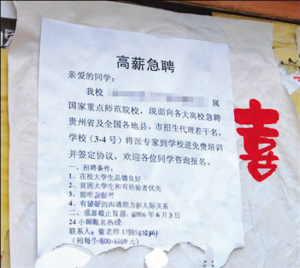 高薪急聘
亲爱的同学:
我校 属
国家重点师范院校,现面向各大高校急聘
贵州省及全国各地县,市招生代理若干名,
学校(3-4号)将派专家到学校进免费培训
并签定协议,欢迎各位同学咨询报名。
一、招聘条件:
1、在校大学生品德良好
2、贫困大学生和有经验者优先
3、能吃
4、有 的沟通能力和人际关系
二、 截止日期:2006年6月3日
24小时 热线:
联系人: 老师
喜